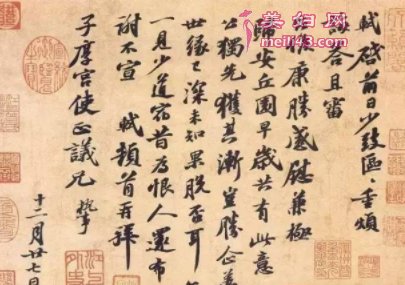 美妇网
meili43.com
軾啓前日少致區〻重煩
誨答且審
台候康勝感慰兼極
歸安丘園早歲共有此意
公獨先獲其漸豈勝企羨
世緣已深未知果脫否耳
一見少道宿昔為恨人還布
謝不宣 軾頓首再拜
子厚宮使正議兄 執事
十二月廿七日